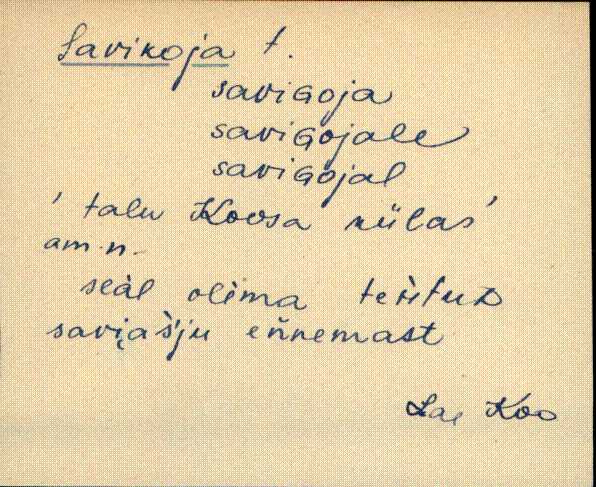 Savikoja t.
saviGoja
saviGojale
saviGojal
' talu Koosa külas'
am. n.
seàl olèma tehtuD
savi̯aš'ju eǹnemast
Lae Koo